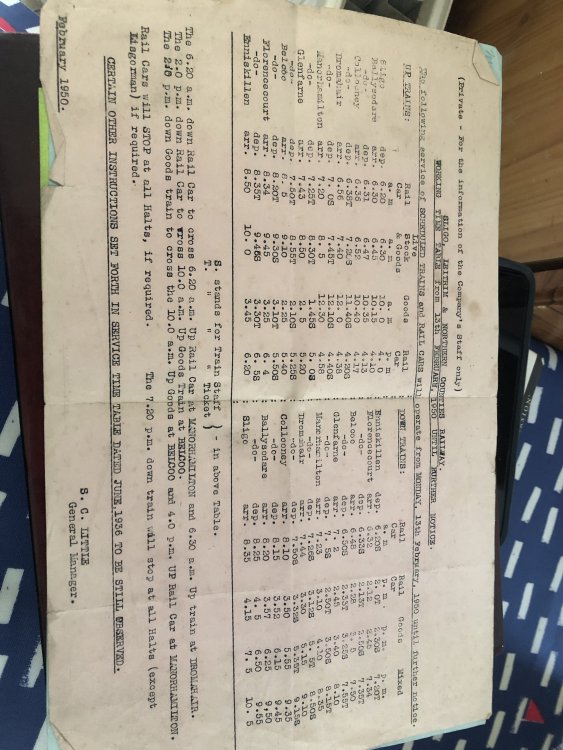 (Private - For the information of the Company's Staff only)
SLIGO, LEITRIM & NORTHERN COUNTIES RAILWAY.
WORKING TIME TABLE from 13th FEBRUARY, 1950 UNTIL FURTHER NOTICE.
The following service of SCHEDULED TRAINS and RAIL CARS will operate from MONDAY, 13th February, 1950 until further notice.
UP TRAINS: Rail Car Live Stock & Goods Goods Rail Car
a.m a.m a.m p.m
Sligo dep. 6.20 6.30 10. 0 4. 0
Ballysodare arr. 6.30 6.45 10.15 4.10
-do- dep. 6.31 6.47 10.35 4.13
Collooney arr. 6.35 6.52 10.40 4.17
-do- dep. 6.35T 7.20S 11.40S 4.20S
Dromahair arr. 6.56 7.40 12. 0 4.38
-do- dep. 7. 0S 7.45T 12.10S 4.40S
Manorhamilton arr. 7.20 8. 5 12.30 4.58
-do- dep. 7.25T 8.30T 1.45S 5. 0S
Glenfarne arr. 7.43 8.50 2. 5 5.20
-do- dep. 7.50T 8.55T 2.10S 5.25S
Belcoo arr. 8. 5 9.10 2.25 5.40
-do- dep. 8.20T 9.30S 3.10T 5.50S
Florencecourt arr. 8.34 9.45 3.25 6. 4
-do- dep. 8.35T 9.46S 3.30T 6. 5S
Enniskillen arr. 8.50 10. 0 3.45 6.20
DOWN TRAINS: Rail Car Rail Car Goods Mixed
a.m p.m. p.m. p.m.
Enniskillen dep. 6.20S 2. 0S 2.30S 7.20T
Florencecourt arr. 6.32 2.12 2.45 7.34
-do- dep. 6.33S 2.13T 2.50S
Belcoo arr. 6.48 2.28 3. 5 7.50
-do- dep. 6.50S 2.33T 3.25S 7.55T
Glenfarne arr. 7. 2 2.45 3.40 8.10
-do- dep. 7. 5S 2.50T 3.50S 8.15T
Manorhamilton arr. 7.23 3.10 4.10 8.35
-do- dep. 7.26S 3.12S 5. 5T 8.50S
Dromahair arr. 7.44 3.30
-do- dep. 7.50S 3.32S 5.35T 9.15S
Collooney arr. 8.10 3.50 5.55 9.35
-do- dep. 8.15 3.52 6.15 9.45
Ballysodare arr. 8.20 3.57 6.25 9.50
-do- dep. 8.25 4. 5 6.50 9.55
Sligo arr. 8.35 4.15 7. 5 10. 5
S. stands for Train Staff } - in above Table.
T. " " " Ticket
The 6.20 a.m. down Rail Car to cross 6.20 a.m. Up Rail Car at MANORHAMILTON and 6.30 a.m. Up train at DROMAHAIR.
The 2.0 p.m. down Rail Car to cross 10.0 a.m. Up Goods Train at BELCOO.
The 2.30 p.m. down Goods train to cross the 10.0 a.m. Up Goods at BELCOO and 4.0 p.m. UP Rail Car at MANORHAMILTON.
Rail Cars will STOP at all Halts, if required. The 7.20 p.m. down train will stop at all Halts (except
Lisgorman) if required.
CERTAIN OTHER INSTRUCTIONS SET FORTH IN SERVICE TIME TABLE DATED JUNE, 1936 TO BE STILL OBSERVED.
S. C. LITTLE
General Manager.
February 1950.